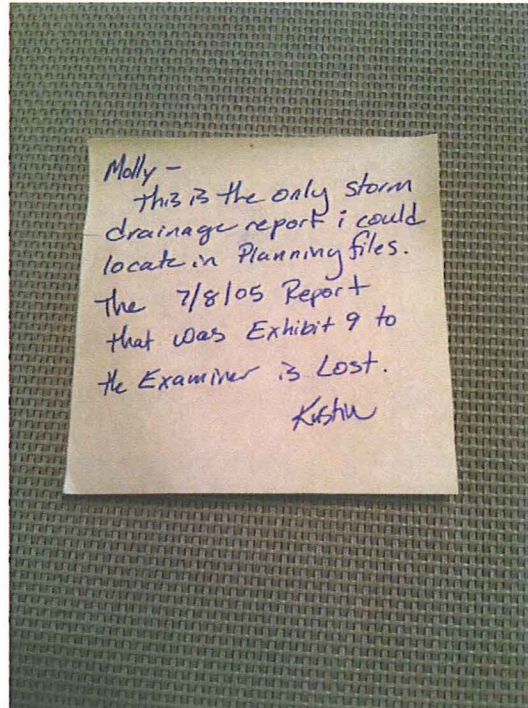 Molly -
this is the only storm
drainage report i could
locate in Planning files.
the 7/8/05 Report
that was Exhibit 9 to
the Examiner is Lost.